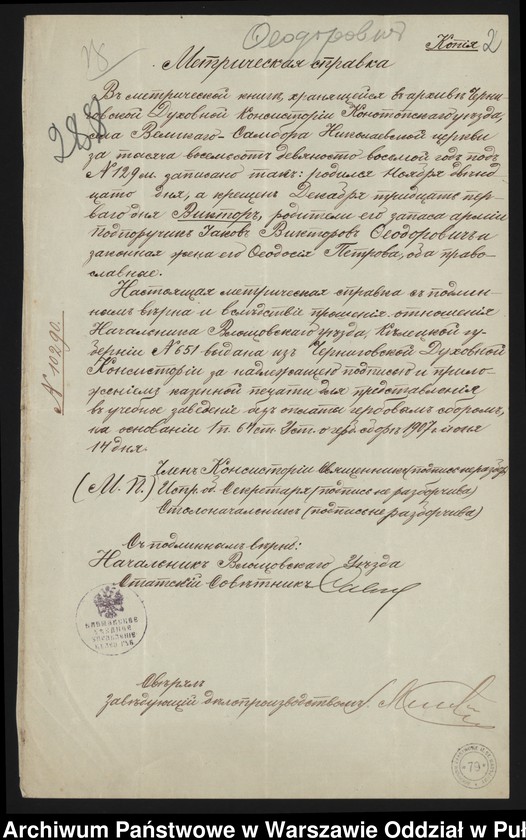 Ѳеодоровичъ
Копія 2
Метрическая справка
Въ метрической книгѣ, хранящейся въ архивѣ Черни-
говской Духовной Консисторіи Конотопскаго уѣзда,
села Великаго Самбора Николаевской церкви
за тысяча восемьсотъ девяносто восьмой годъ подъ
№ 129 м. записано такъ: родился Ноября двѣнад-
цатаго дня, а крещенъ Декабря тридцать пер-
ваго дня Викторъ, родители его запаса арміи
Подпоручикъ Іаковъ Викторовъ Ѳеодоровичъ и
законная жена его Ѳеодосія Петрова, оба право-
славные.
Настоящая метрическая справка съ подлин-
номъ вѣрна и вслѣдствіе отношенія
Начальника Влощовскаго уѣзда, Кѣлецкой гу-
берніи № 651 выдана изъ Черниговской Духовной
Консисторіи за надлежащею подписью и прило-
женіемъ казенной печати для представленія
въ учебное заведеніе безъ оплаты гербовымъ сборомъ,
на основаніи 1 п. 64 ст. Уст. о герб. сборѣ 1907 г. Іюня
14 дня.
Членъ Консисторіи Священникъ (подпись не разбор.
(М. П.) Испр. об. Секретаря (подпись не разборчива)
Столоначальникъ (подпись не разборчива)
Съ подлиннымъ вѣрно:
Начальникъ Влощовскаго Уѣзда
Статскій Совѣтникъ
Свѣрялъ
Завѣдующій дѣлопроизводствомъ
79
Archiwum Państwowe w Warszawie Oddział w Puł